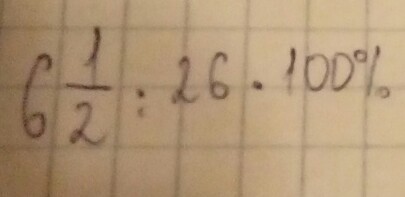 6 1/2 : 26 · 100%